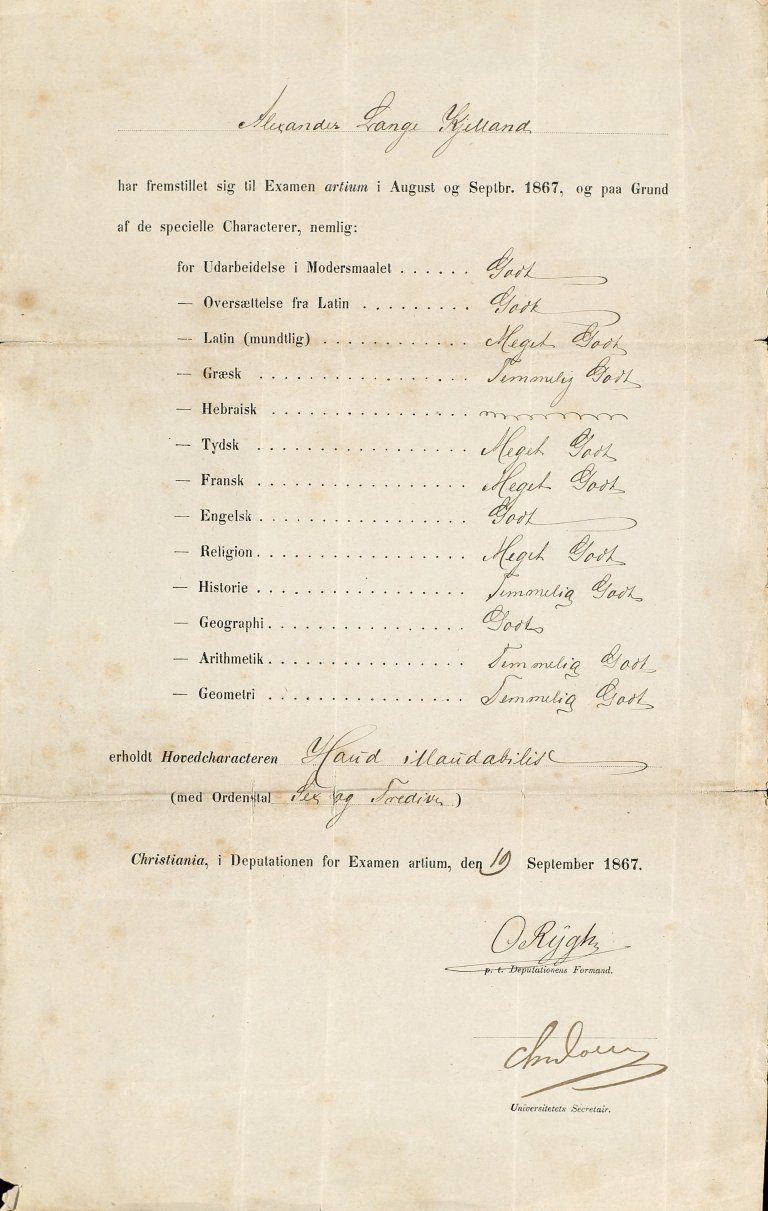 Alexander Lange Kjelland
har fremstillet sig til Examen artium i August og Septbr. 1867, og paa Grund
af de specielle Characterer, nemlig:
for Udarbeidelse i Modersmaalet . . . . . . Godt
— Oversættelse fra Latin . . . . . . . . . Godt
— Latin (mundtlig) . . . . . . . . . . . . Meget Godt
— Græsk . . . . . . . . . . . . . . . . . Temmelig Godt
— Hebraisk . . . . . . . . . . . . . . . .
— Tydsk . . . . . . . . . . . . . . . . . Meget Godt
— Fransk . . . . . . . . . . . . . . . . . Meget Godt
— Engelsk . . . . . . . . . . . . . . . . . Godt
— Religion . . . . . . . . . . . . . . . . . Meget Godt
— Historie . . . . . . . . . . . . . . . . . Temmelig Godt
— Geographi . . . . . . . . . . . . . . . . Godt
— Arithmetik . . . . . . . . . . . . . . . . Temmelig Godt
— Geometri . . . . . . . . . . . . . . . . Temmelig Godt
erholdt Hovedcharacteren Haud illaudabilis
(med Ordenstal Sex og Tredive)
Christiania, i Deputationen for Examen artium, den 19 September 1867.
O Rygh
p. t. Deputationens Formand.
Universitetets Secretair.